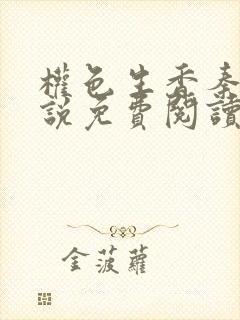 權色生香秦
說免費閱讀
金菠蘿